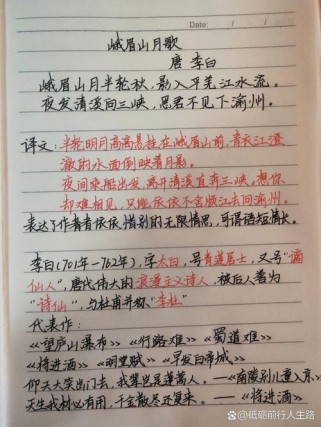 Date: / /
峨眉山月歌
唐 李白
峨眉山月半轮秋，影入平羌江水流。
夜发清溪向三峡，思君不见下渝州。
译文：半轮明月高高悬挂在峨眉山前，青衣江澄
澈的水面倒映着月影。
夜间乘船出发，离开清溪直奔三峡。想你
却难相见，只能依依不舍顺江去向渝州。
表达了作者依依惜别的无限情思，可谓语短情长。
李白(701年-762年)，字太白，号青莲居士，又号"谪
仙人"，唐代伟大的浪漫主义诗人，被后人誉为
"诗仙"，与杜甫并称"李杜"
代表作：
《望庐山瀑布》《行路难》《蜀道难》
《将进酒》《明堂赋》《早发白帝城》
仰天大笑出门去，我辈岂是蓬蒿人。——《南陵别儿童入京》
天生我材必有用，千金散尽还复来。——《将进酒》
@砥砺前行人生路